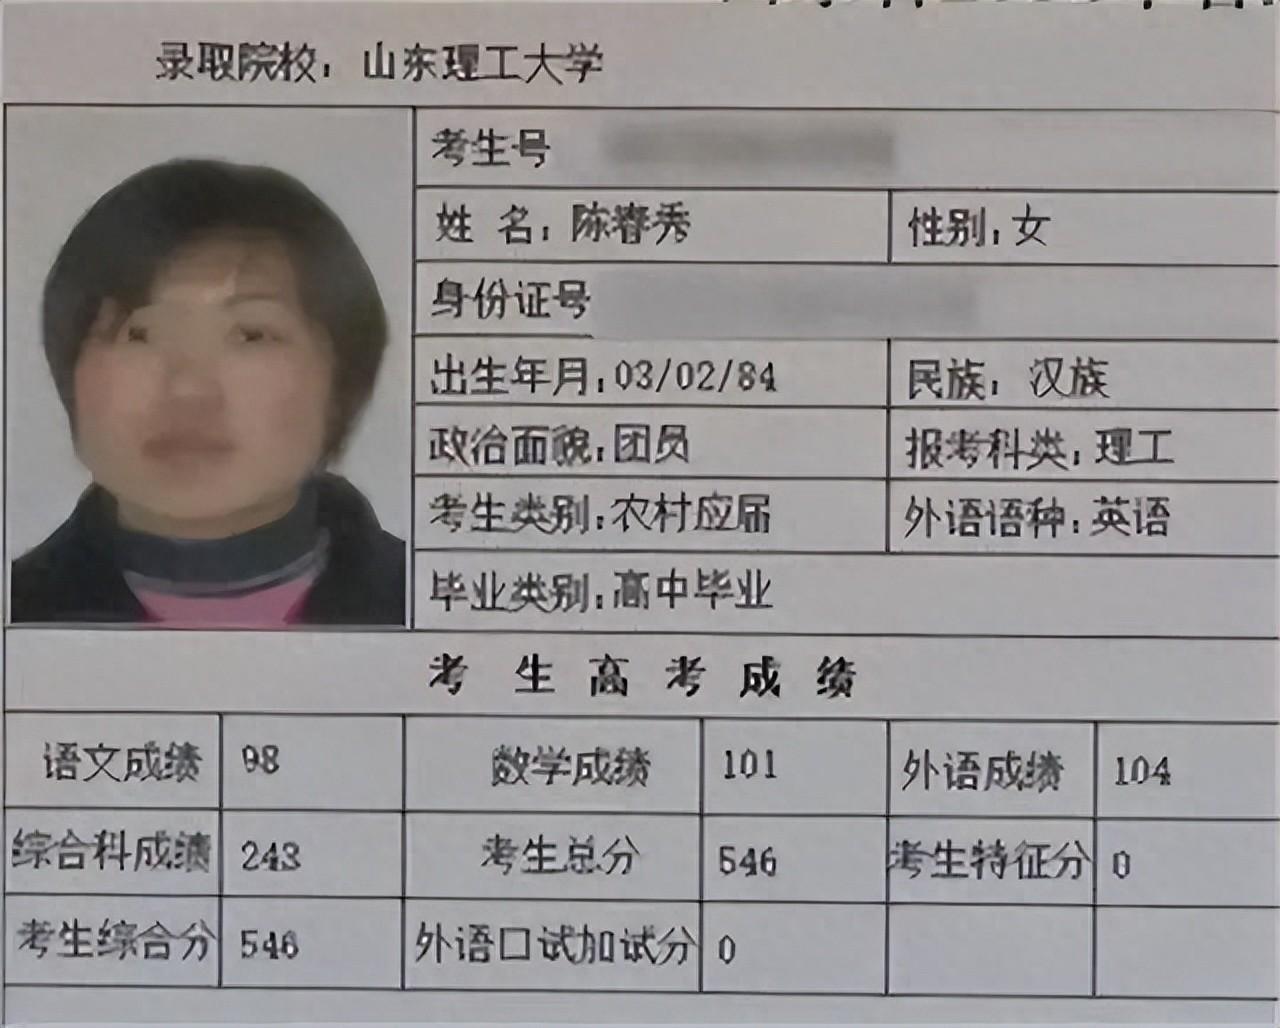 录取院校：山东理工大学
考生号
姓 名：陈春秀 性别：女
身份证号
出生年月：03/02/84 民族：汉族
政治面貌：团员 报考科类：理工
考生类别：农村应届 外语语种：英语
毕业类别：高中毕业
考生高考成绩
语文成绩 98 数学成绩 101 外语成绩 104
综合科成绩 243 考生总分 546 考生特征分 0
考生综合分 546 外语口试加试分 0